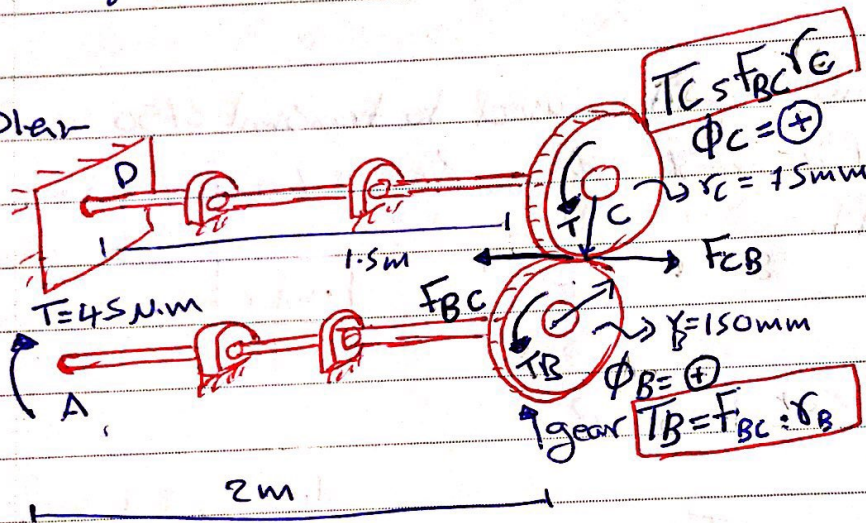 TC = F_BC r_C
φ_C = ⊕
D
r_C = 75mm
T
C
1.5m
F_CB
T=45 N.m
F_BC
r_B=150mm
T_B
φ_B= ⊕
A
gear
T_B = F_BC . r_B
2m